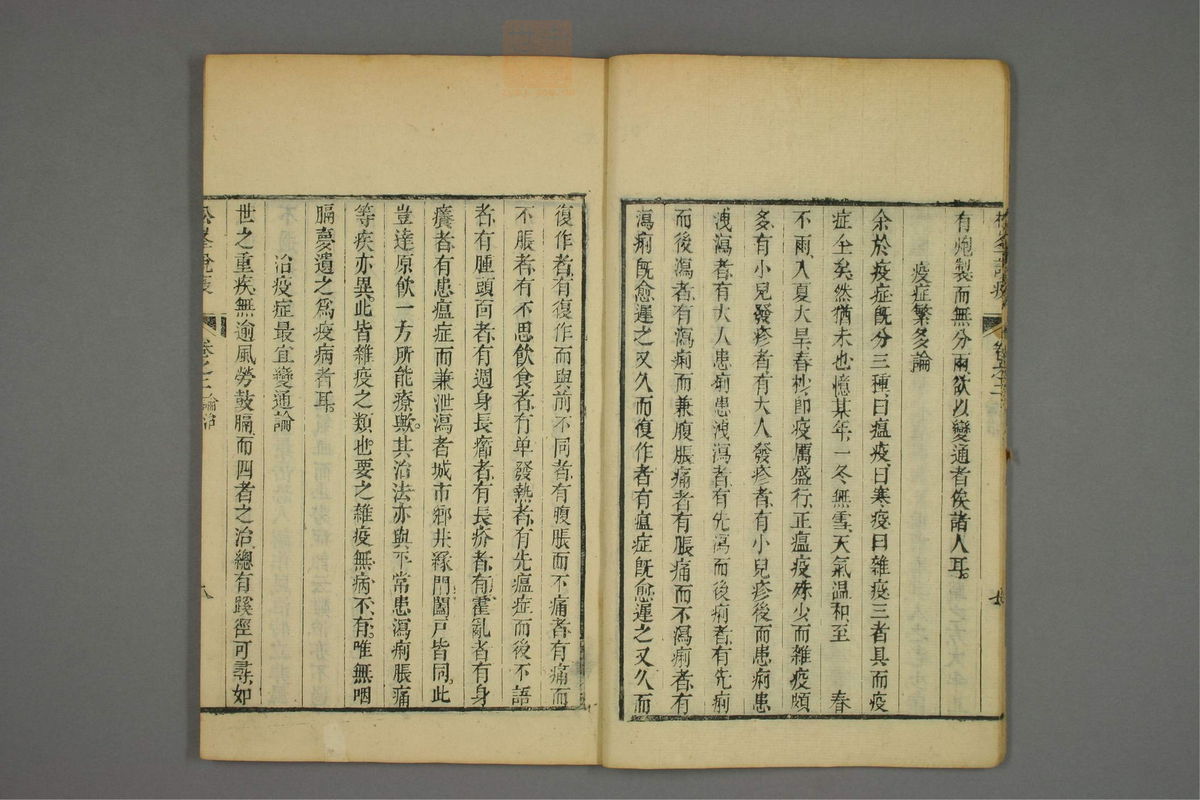 有炮製而無分兩欲以變通者俟諸人耳
疫症繁多論
余於疫症旣分三種曰瘟疫曰寒疫曰雜疫三者具而疫
症全矣然猶未也憶某年一冬無雪天氣温和至 春
不雨入夏大旱春杪卽疫厲盛行正瘟疫殊少而雜疫頗
多有小兒發疹者有大人發疹者有小兒疹後而患痢患
洩瀉者有大人患痢患洩瀉者有先瀉而後痢者有先痢
而後瀉者有瀉痢而兼腹脹痛者有脹痛而不瀉痢者有
瀉痢旣愈遲之又久而復作者有瘟症旣愈遲之又久而
復作者有復作而與前不同者有腹脹而不痛者有痛而
不脹者有不思飲食者有单發熱者有先瘟症而後不語
者有腫頭面者有週身長癤者有長疥者有霍亂者有身
癢者有患瘟症而兼泄瀉者城市鄉井緣門闔戶皆同此
豈達原飲一方所能療歟其治法亦與平常患瀉痢脹痛
等疾亦異此皆雜疫之類也要之雜疫無病不有唯無咽
膈夢遺之爲疫病者耳
治疫症最宜變通論
世之重疾無逾風勞鼓膈而四者之治總有蹊徑可尋如
松峯說疫 卷之二 論治 八